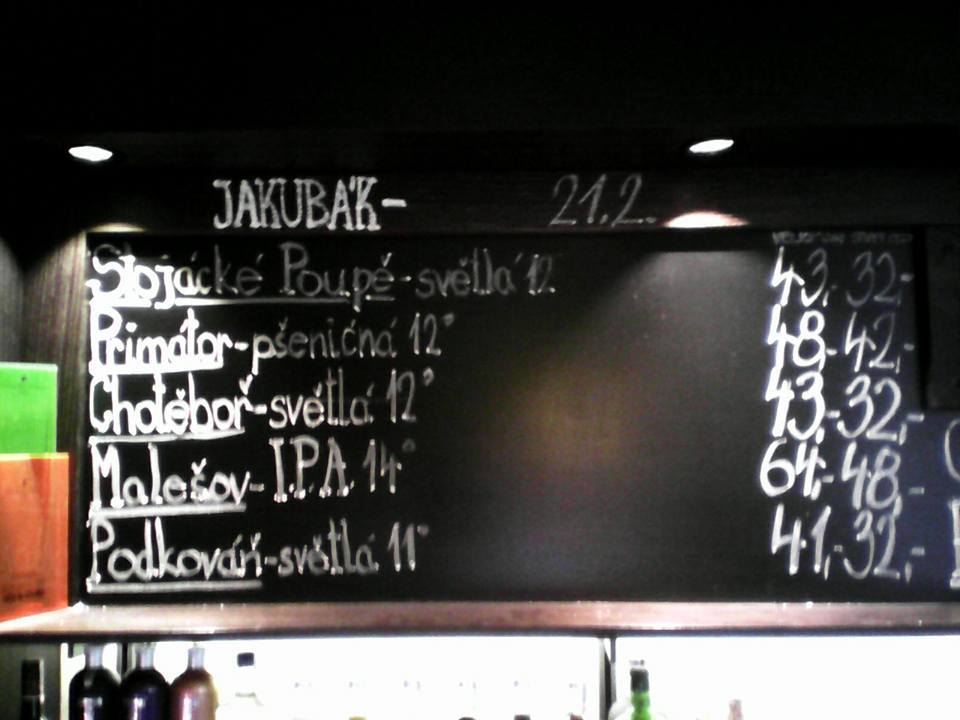 JAKUBÁK- 21.2.
Stojácké Poupě-světlá 12 43,- 32,-
Primátor-pšeničná 12° 48,- 42,-
Chotěboř-světlá 12° 43,- 32,-
Malešov-I.P.A. 14° 64,- 48,-
Podkováň-světlá 11° 41,- 32,-